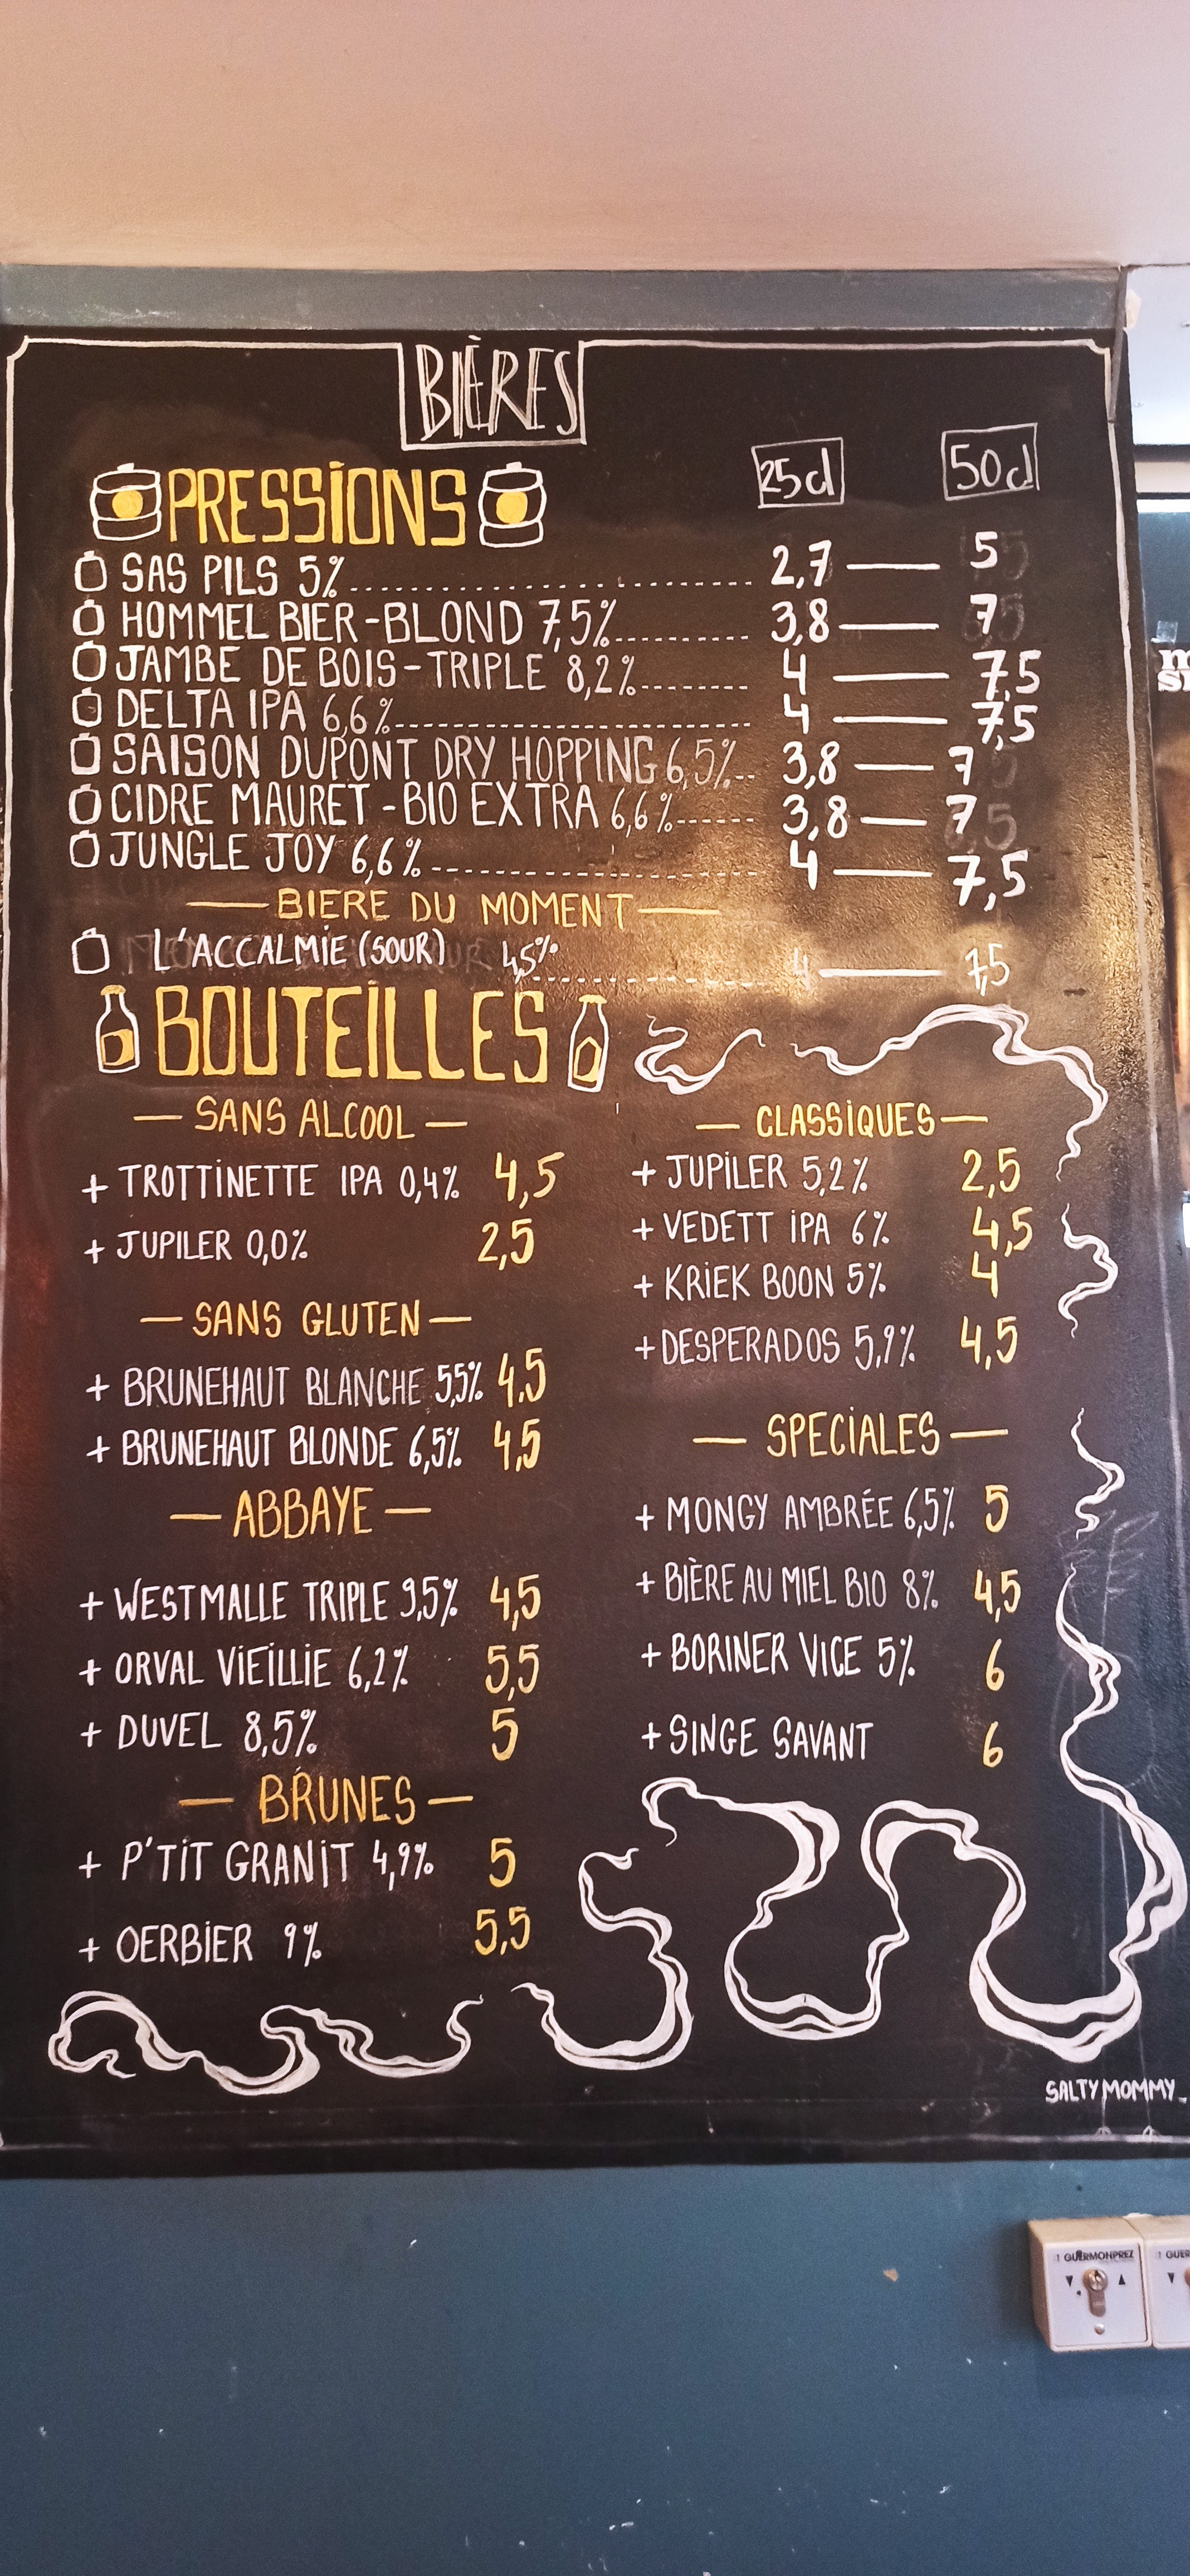 BIÈRES
25cl 50cl
PRESSIONS
SAS PILS 5% 2,7 5
HOMMEL BIER-BLOND 7,5% 3,8 7
JAMBE DE BOIS-TRIPLE 8,2% 4 7,5
DELTA IPA 6,6% 4 7,5
SAISON DUPONT DRY HOPPING 6,5% 3,8 7
CIDRE MAURET-BIO EXTRA 6,6% 3,8 7
JUNGLE JOY 6,6% 4 7,5
— BIERE DU MOMENT —
L'ACCALMIE (SOUR) 4,5% 4 7,5
BOUTEILLES
— SANS ALCOOL —
+ TROTTINETTE IPA 0,4% 4,5
+ JUPILER 0,0% 2,5
— SANS GLUTEN —
+ BRUNEHAUT BLANCHE 5,5% 4,5
+ BRUNEHAUT BLONDE 6,5% 4,5
— ABBAYE —
+ WESTMALLE TRIPLE 9,5% 4,5
+ ORVAL VIEILLIE 6,2% 5,5
+ DUVEL 8,5% 5
— BRUNES —
+ P'TIT GRANIT 4,9% 5
+ OERBIER 9% 5,5
— CLASSIQUES —
+ JUPILER 5,2% 2,5
+ VEDETT IPA 6% 4,5
+ KRIEK BOON 5% 4
+ DESPERADOS 5,9% 4,5
— SPECIALES —
+ MONGY AMBRÉE 6,5% 5
+ BIÈRE AU MIEL BIO 8% 4,5
+ BORINER VICE 5% 6
+ SINGE SAVANT 6
SALTYMOMMY_
GUERMONPREZ